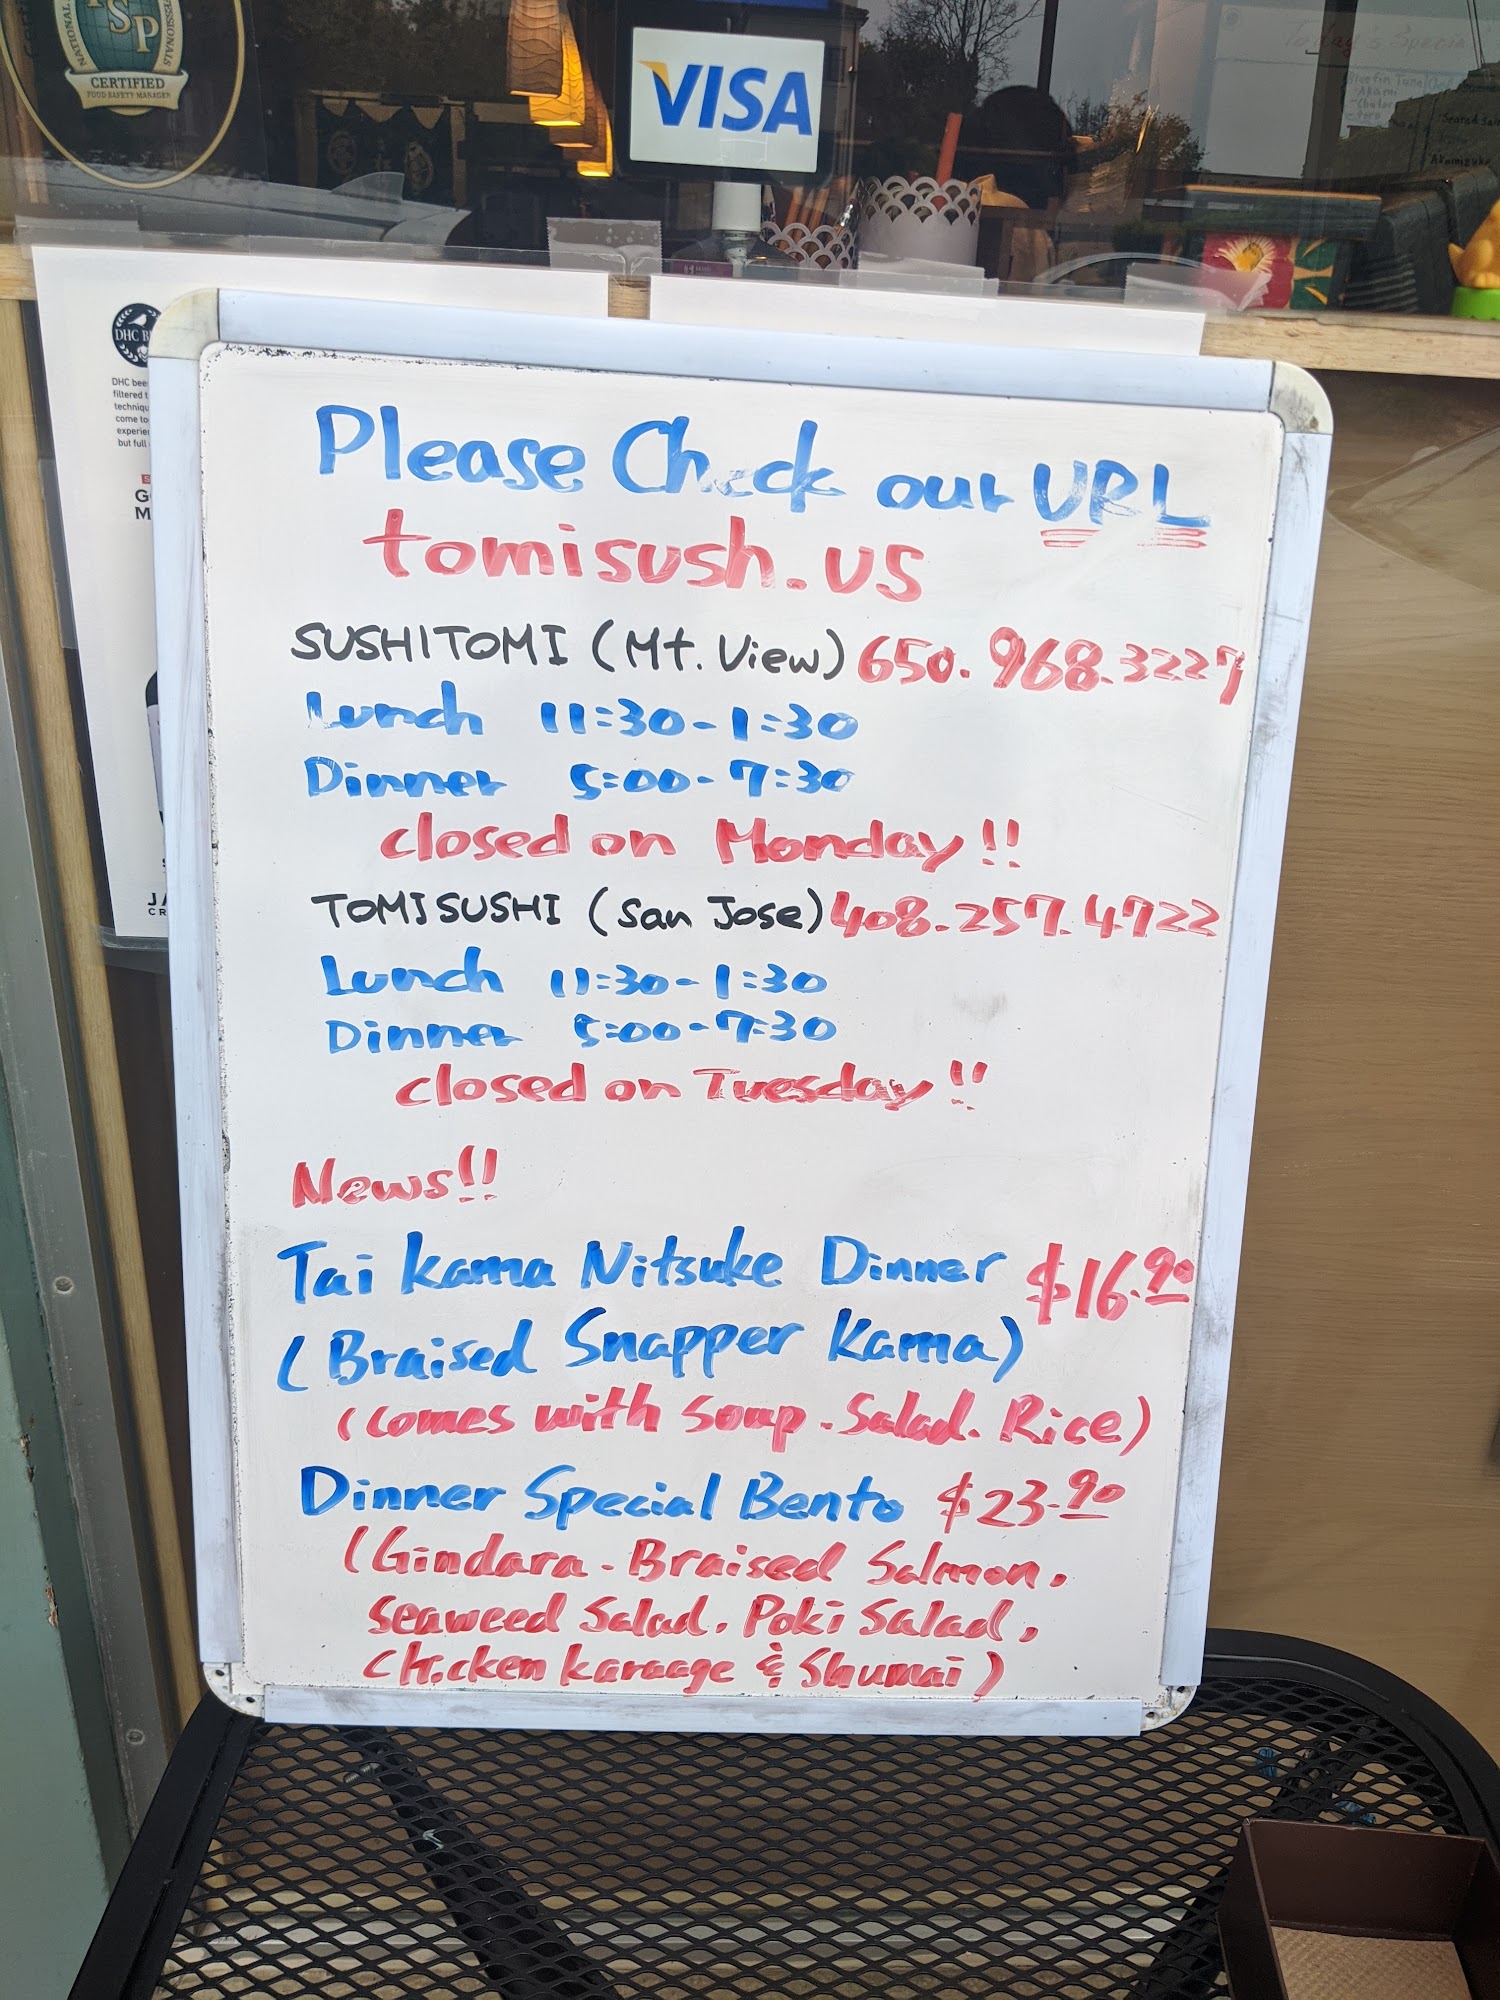 SP
NATIONAL
CERTIFIED
FOOD SAFETY MANAGER
VISA
Today's Special
DHC B
DHC bee
filtered t
techniqu
come to
experien
but full
Please Check our URL
tomisush.us
SUSHITOMI (Mt. View) 650.968.3227
Lunch 11:30-1:30
Dinner 5:00-7:30
closed on Monday!!
TOMISUSHI (San Jose) 408.257.4722
Lunch 11:30-1:30
Dinner 5:00-7:30
closed on Tuesday!!
News!!
Tai Kama Nitsuke Dinner $16.90
(Braised Snapper Kama)
(comes with soup. Salad. Rice)
Dinner Special Bento $23.90
(Gindara. Braised Salmon.
Seaweed Salad. Poki Salad,
Chicken karaage & Shumai)